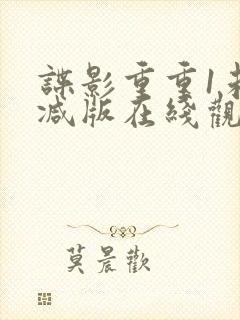 諜影重重1未
減版在綫觀
莫晨歡